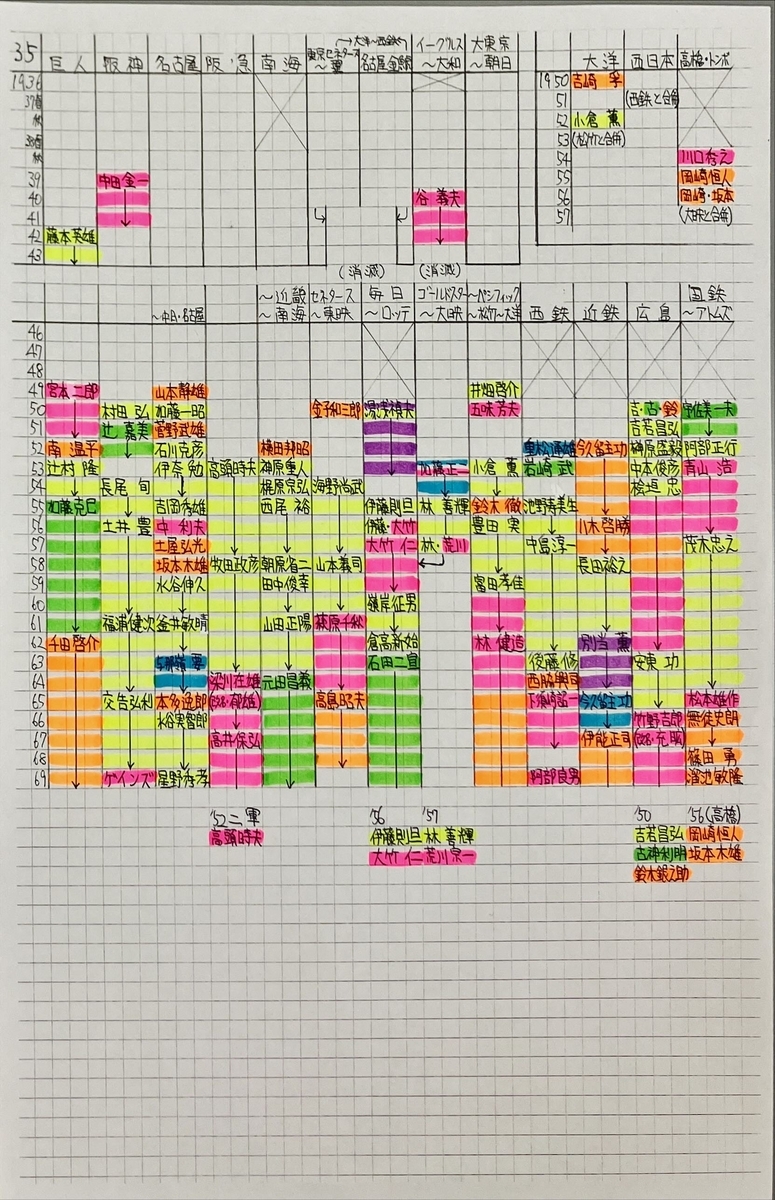 35 巨人 阪神 名古屋 阪・急 南海 東京セネタース～翼 大洋～西鉄 名古屋金鯱 イーグルス～大和 大東京～朝日 大洋 西日本 高橋・トンボ
1936 1950 吉崎 孚
37春 51 (西鉄と合併)
秋 52 小倉 薫
38春 53 (松竹と合併)
秋 54 川口秀之
39 中田金一 55 岡崎恒人
40 谷 義夫 56 岡崎・坂本
41 57 (大映と合併)
42 藤本英雄
43
(消滅) (消滅)
～中日・名古屋 ～近畿～南海 セネタース～東映 毎日～ロッテ ゴールドスター～大映 ～パシフィック～松竹～大洋 西鉄 近鉄 広島 国鉄～アトムズ
46
47
48
49 宮本二郎 山本静雄 井畑啓介
50 村田 弘 加藤一昭 金子和三郎 湯浅禎夫 五味芳夫 吉・古・鈴 宇佐美一夫
51 辻 嘉美 菅野武雄 吉若昌弘
52 南 温平 石川克彦 横田邦昭 重松通雄 今久留主功 榊原盛毅 阿部正行
53 辻村 隆 伊奈 勉 高頭時夫 神原重人 加藤正二 小倉 薫 岩崎 武 中本俊彦 青山 浩
54 長尾 旬 梶原宗弘 海野尚武 桧垣 忠
55 加藤克巳 吉岡秀雄 西尾 裕 伊藤則旦 林 善輝 鈴木 徹 池野寿美生
56 土井 豊 中 利夫 伊藤・大竹 豊田 実 小木啓勝
57 土屋弘光 大竹 仁 林・荒川 中島淳一 茂木忠之
58 坂本木雄 牧田政彦 朝原省二 山本義司 長田裕之
59 水谷伸久 田中俊幸 富田孝佳
60 嶺岸征男
61 福浦健次 釜井敏晴 山田正陽 萩原千秋
62 千田啓介 倉高新始 林 健造 別当 薫
63 与那嶺 要 石田二宜 後藤 修 安東 功
64 梁川在雄 元田昌義 西脇興司
65 交告弘利 本多逸郎 高島昭夫 下須崎詔一 今久留主功 松本雄作
66 水谷実智郎 竹野吉郎 無徒史朗
67 高井保弘 伊能正司
68 篠田 勇
69 ゲインズ 星野秀孝 阿部良男 溜池敏隆
'52二軍 '56 '57 '50 '56(高橋)
高頭時夫 伊藤則旦 林 善輝 吉若昌弘 岡崎恒人
大竹 仁 荒川宗一 古神利明 坂本木雄
鈴木銀之助